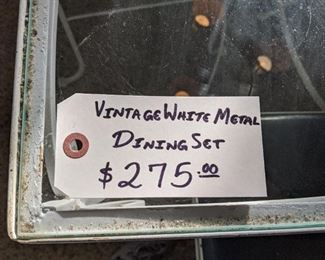 VINTAGE WHITE METAL
DINING SET
$275.00